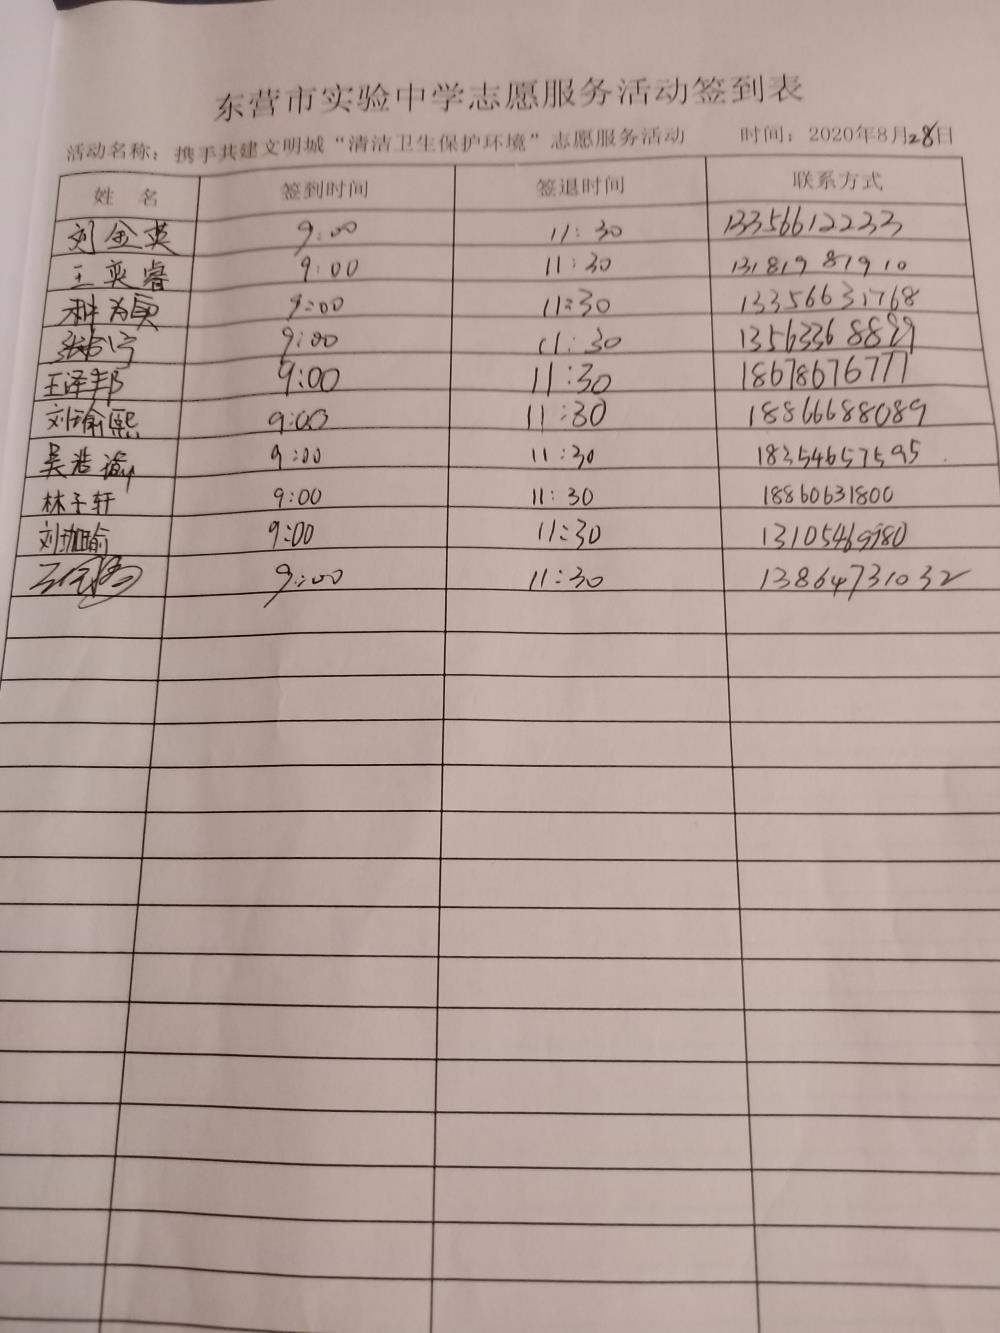 东营市实验中学志愿服务活动签到表
活动名称：携手共建文明城“清洁卫生保护环境”志愿服务活动 时间：2020年8月28日
姓 名 签到时间 签退时间 联系方式
刘金英 9:00 11:30 13356612233
王奕睿 9:00 11:30 13181981910
9:00 11:30 13356631768
9:00 11:30 13563368889
王泽邦 9:00 11:30 18678676777
刘瑜熙 9:00 11:30 18866688089
吴浩瑜 9:00 11:30 18354657595
林子轩 9:00 11:30 18860631800
刘珈瑜 9:00 11:30 13105469980
9:00 11:30 13864731032